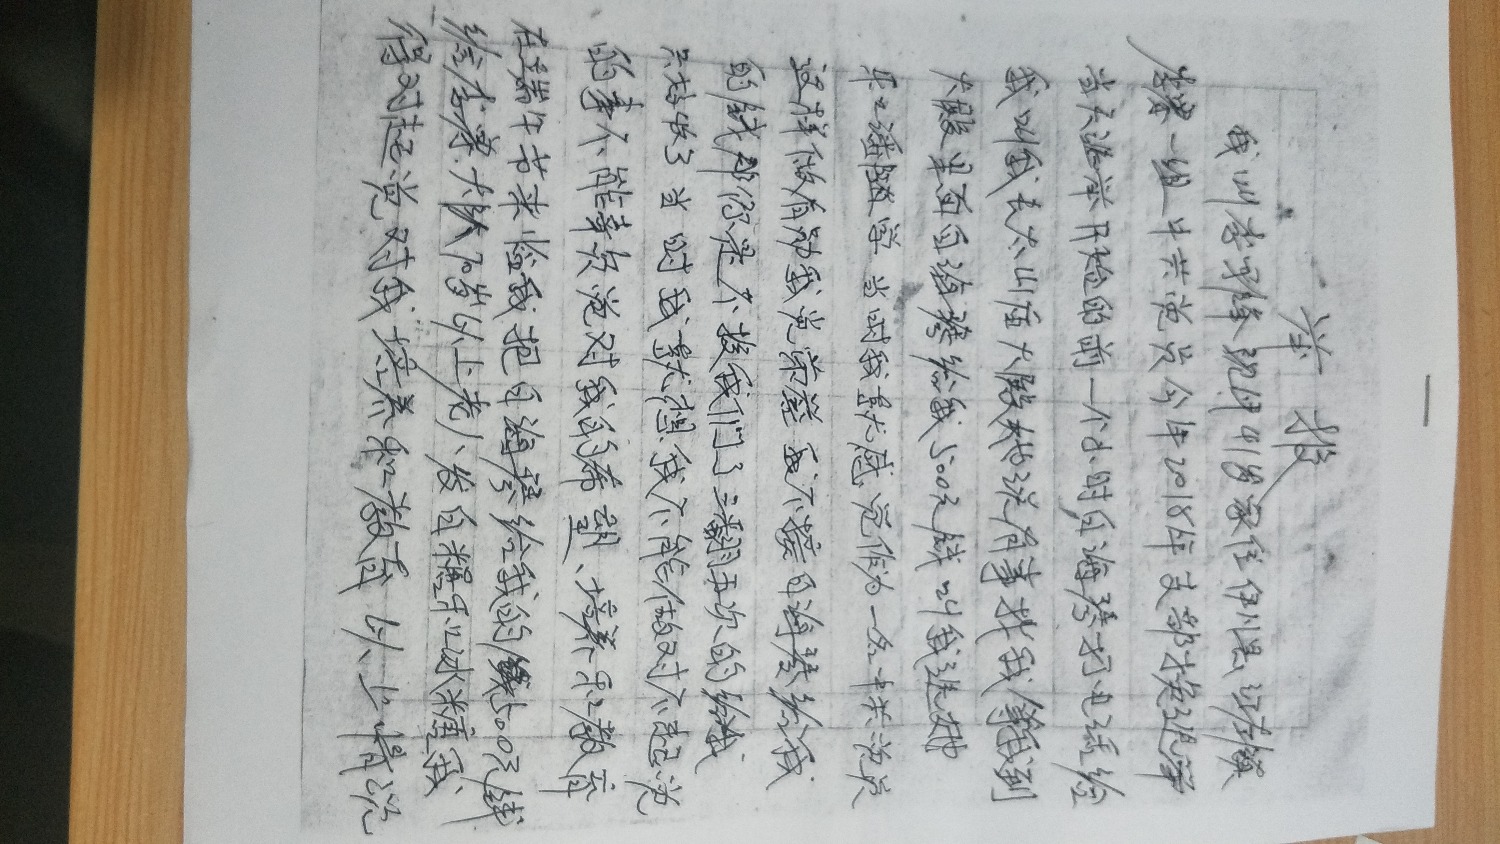 举报
我叫李 现年41岁家住伊川县
一组中共党员今年2018年支部 选举
当天 选举开始的前一个小时白海琴打电话给
我叫我去太山庙大殿她说有事找我 我到
大殿里面白海琴给我500元钱叫我选她
和 选 当时我 感觉作为一名中共党员
这样做有 我党荣誉 我不接白海琴给我
的钱 你是不 我们了三翻五次的给我
只好 了当时我 想我不能做对不起党
的事不能辜负党对我的希望、培养和教育
在端午节来临我把白海琴给我的 500元钱
给 大队70岁以上老人发白糖和冰糖 我
得对起党对我培养和教育以上情况